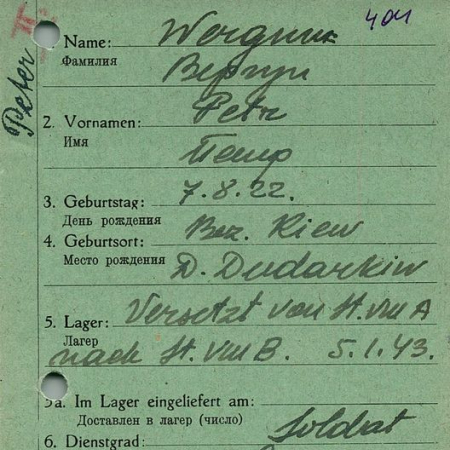 404
Peter
1. Name: Wergun
Фамилия
Вергун
2. Vornamen: Petr
Имя
Петр
3. Geburtstag: 7.8.22.
День рождения
4. Geburtsort: Bez. Kiew
Место рождения D. Dudarkiw
5. Lager: Versetzt von St. VIII A
Лагер
nach St. VIII B. 5.1.43.
5a. Im Lager eingeliefert am:
Доставлен в лагер (число)
6. Dienstgrad: Soldat